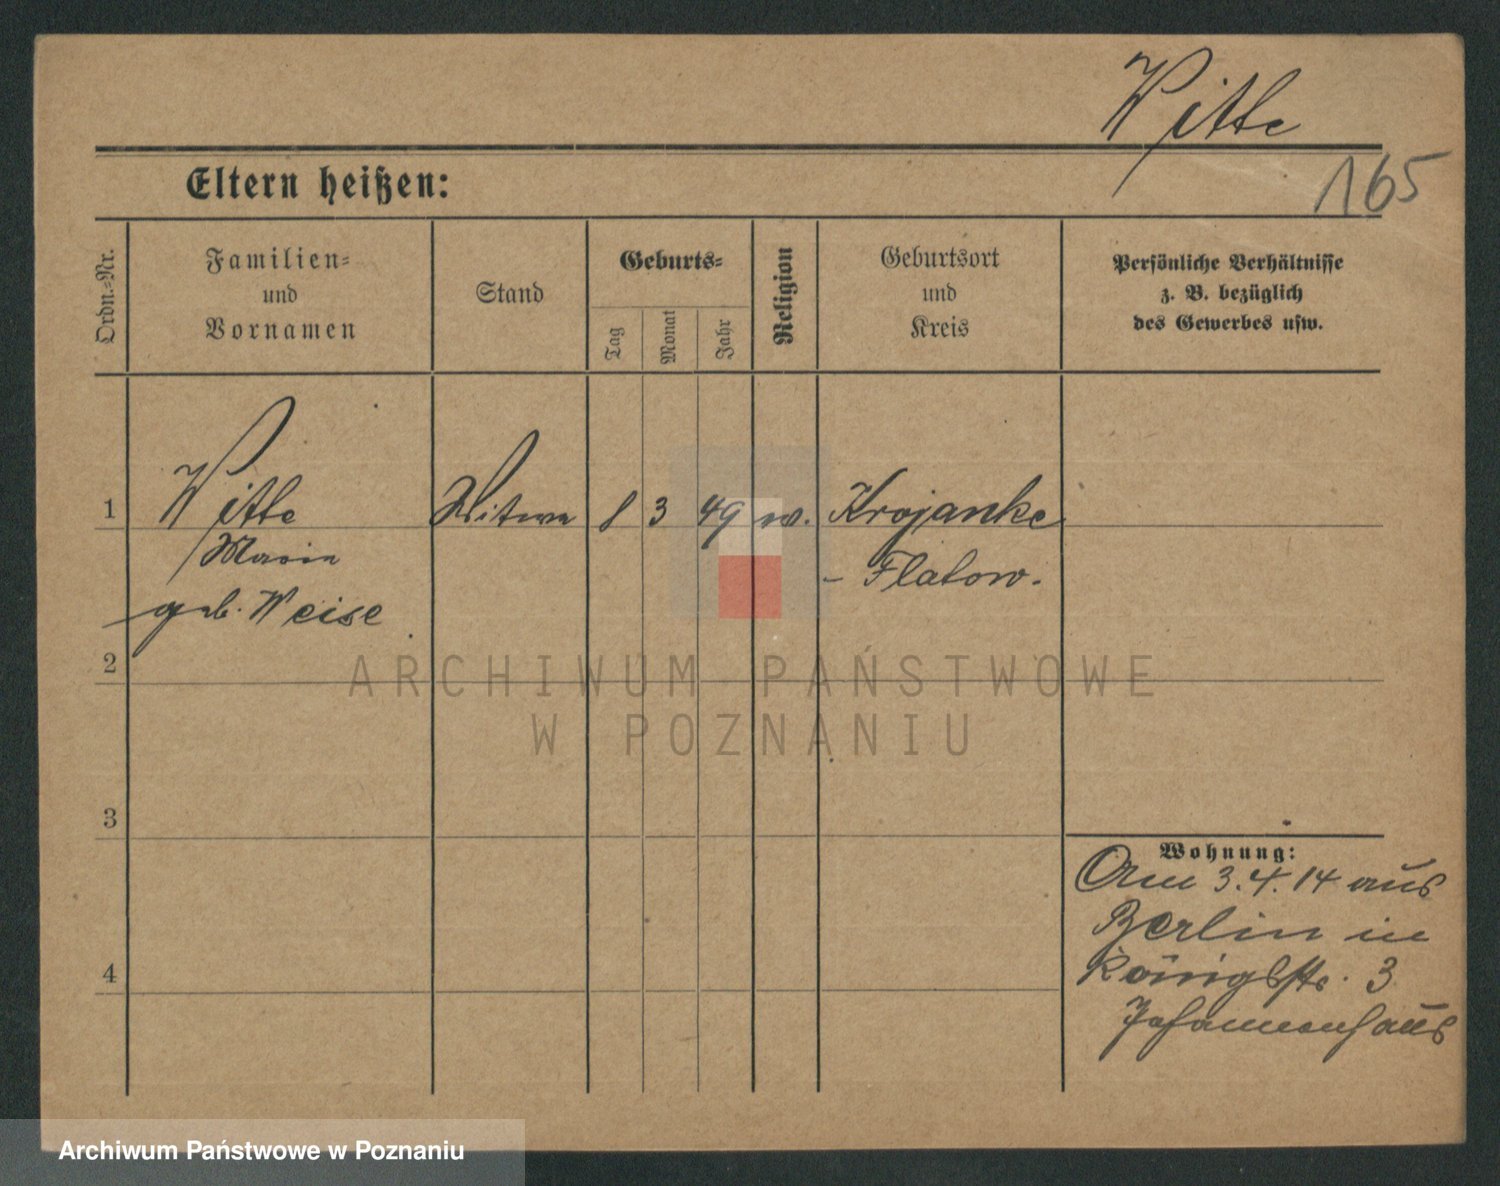 Witte
165
Eltern heißen:
Ordn.-Nr.
Familien-
und
Vornamen
Stand
Geburts-
Tag
Monat
Jahr
Religion
Geburtsort
und
Kreis
Persönliche Verhältnisse
z. B. bezüglich
des Gewerbes usw.
1 Witte Witwe 8 3 49 ev. Krojanke
Maria - Flatow.
geb. Weise
2
ARCHIWUM PAŃSTWOWE
W POZNANIU
3
Wohnung:
Am 3.4.14 aus
Berlin in
Königsstr. 3
Johannenhaus
4
Archiwum Państwowe w Poznaniu